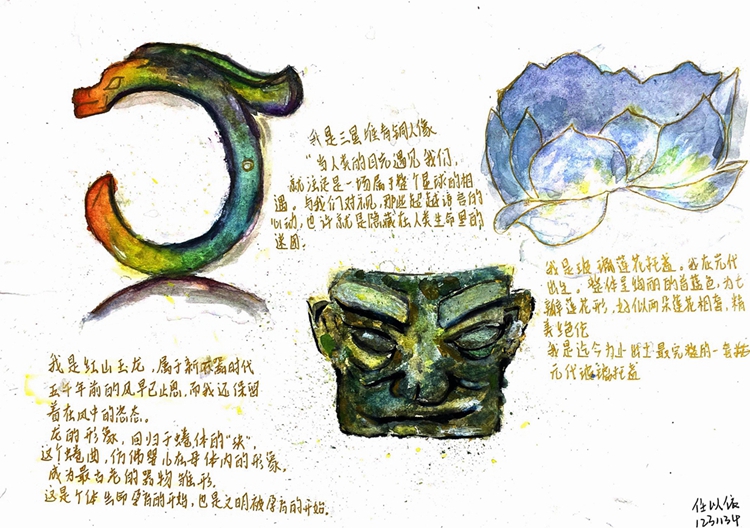 我是三星堆青铜人像
“当人类的目光遇见我们,
就注定是一场属于整个星球的相
遇,与我们对视,那些超越语言的
心动,也许就是隐藏在人类生命里的
迷因。
我是玻璃莲花托盏。我在元代
出生。整体呈绚丽的普蓝色,为七
瓣莲花形,好似两朵莲花相叠,精
美绝伦
我是迄今为止出土最完整的一套
元代玻璃托盏
我是红山玉龙,属于新石器时代
五千年前的风早已止息,而我还保留
着在风中的姿态。
龙的形象,回归于蜷体的“玦”,
这个蜷曲,仿佛婴儿在母体内的形象,
成为最古老的器物雏形
这是个体生命孕育的开始,也是文明被孕育的开始。
任以依
1231134